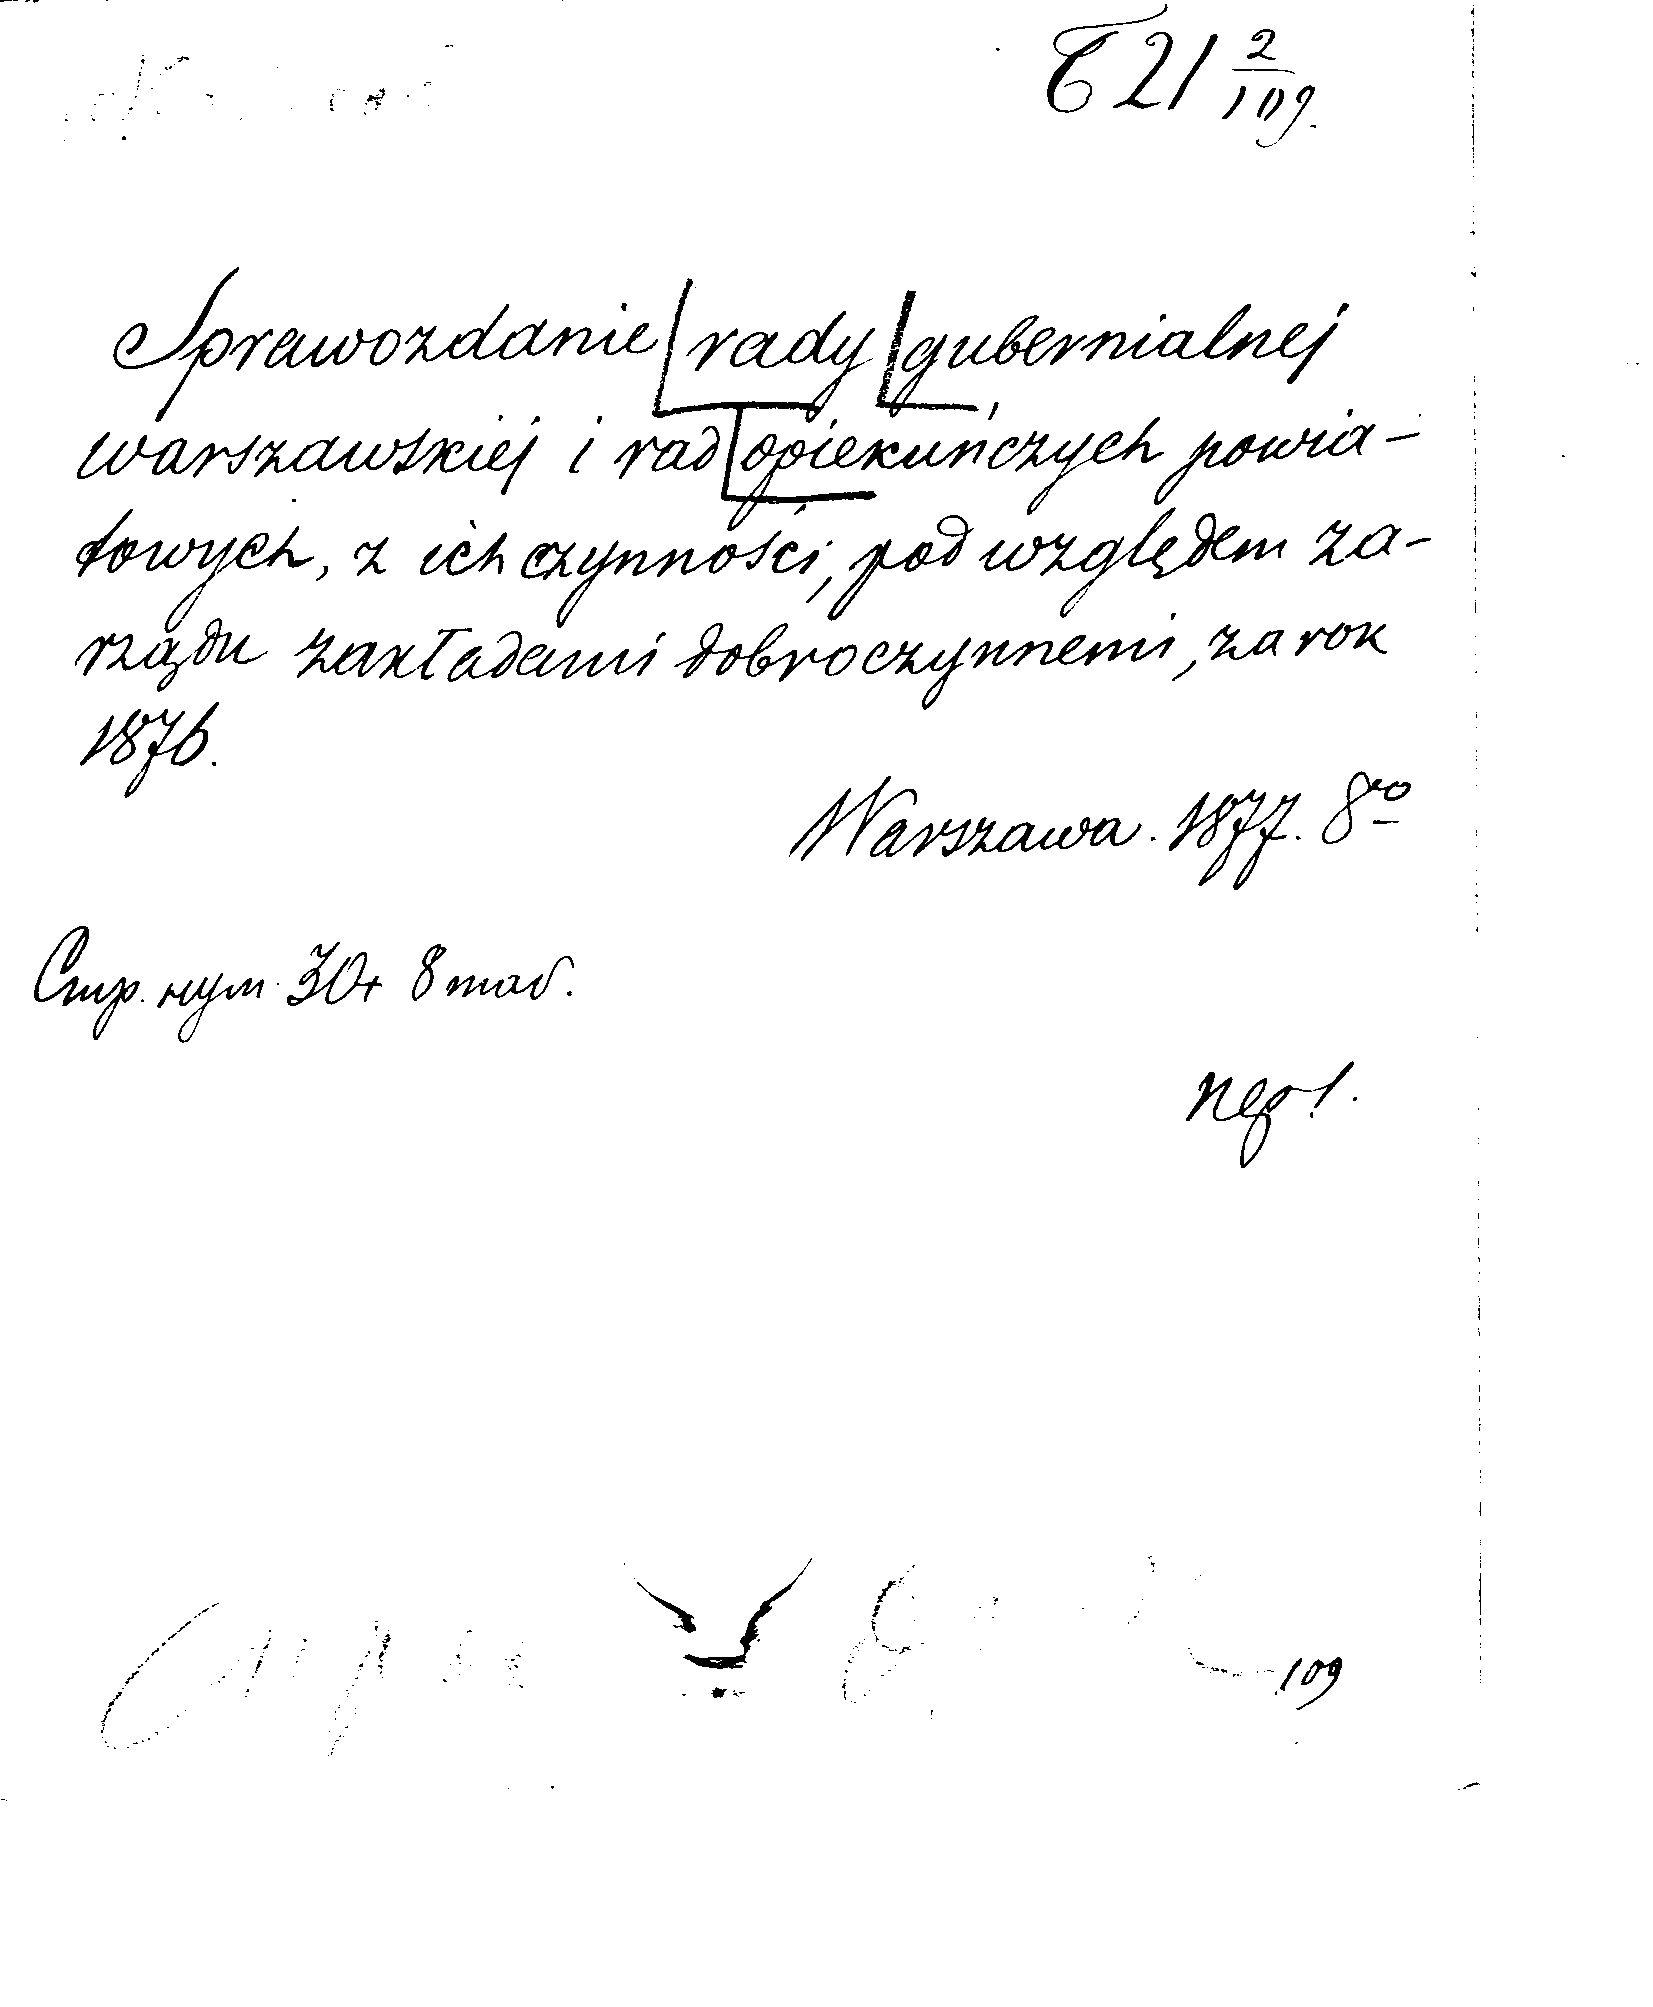 Б 21 2/109.
Sprawozdanie rady gubernialnej
warszawskiej i rad opiekuńczych powia-
towych, z ich czynności, pod względem za-
rządu zakładami dobroczynnemi, za rok
1876.
Warszawa. 1877. 8vo
Стр. нум. 30+ 8 таб.
109